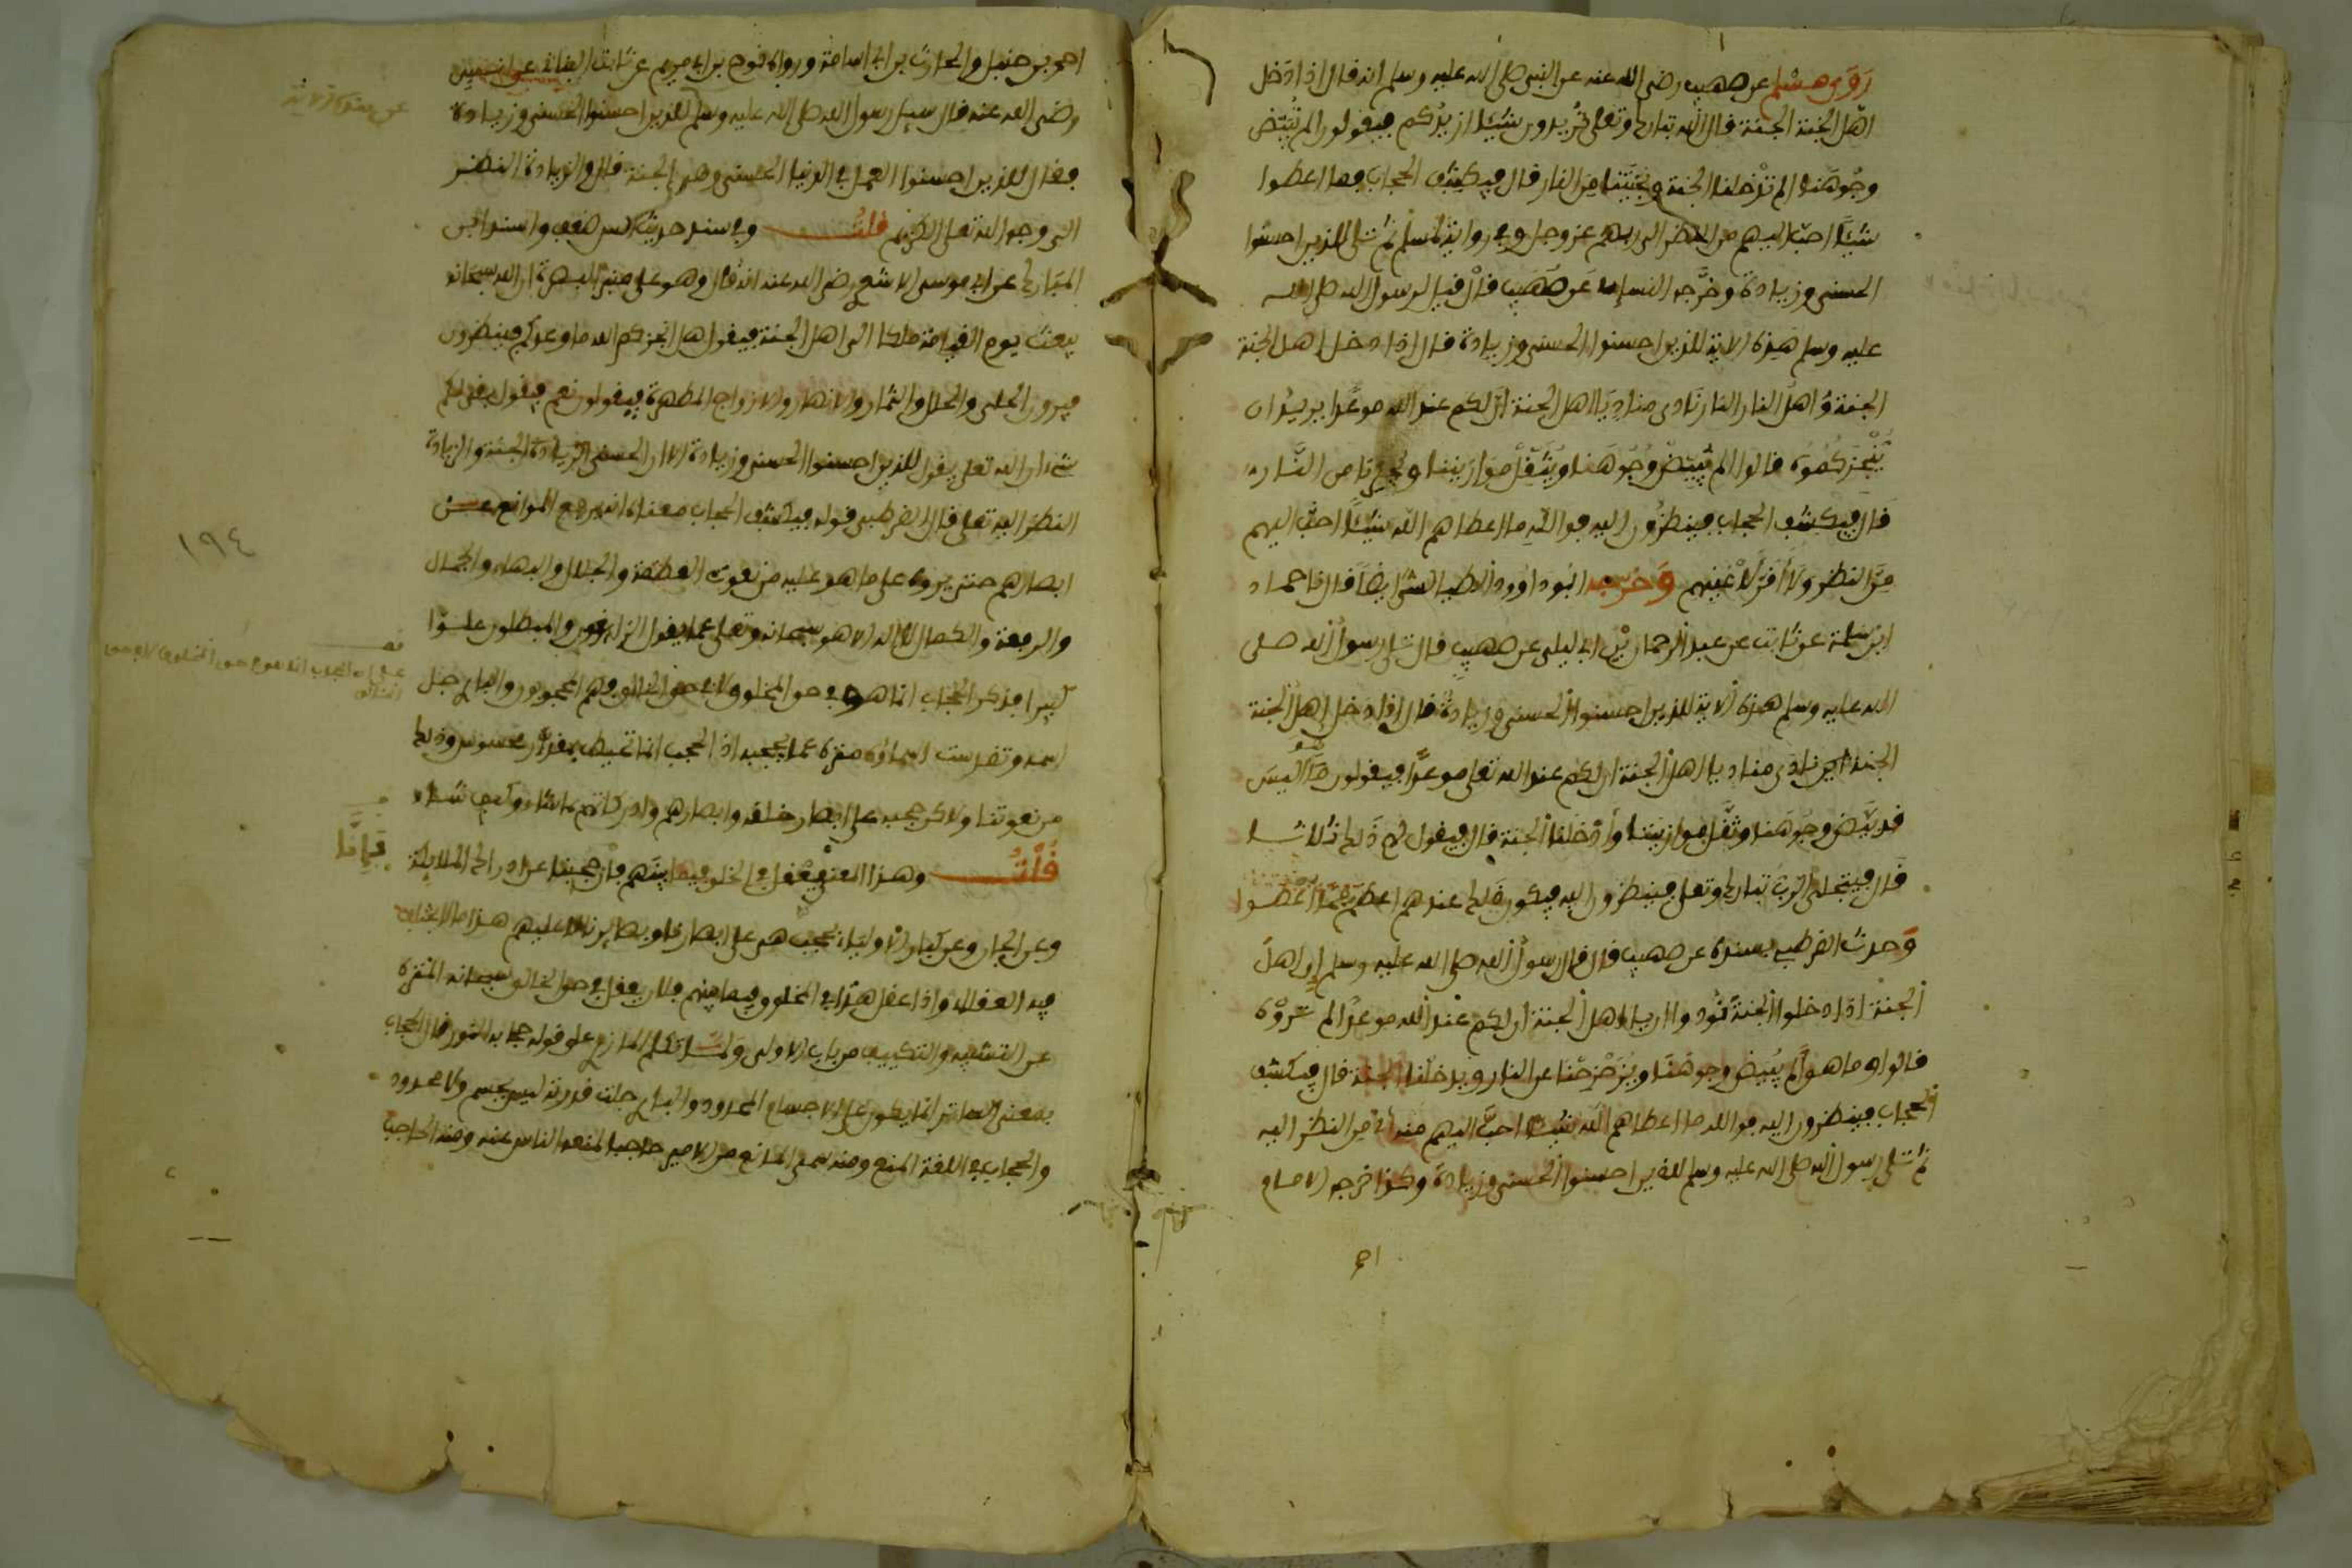 رَوَى مسْلم عن صهيب رضى الله عنه عن النبى صلى الله عليه وسلم انه قال اذا دَخل
اهْل الجنة الجنة قال الله تبارك وتعلى تُريدون شيْئا ازيدُكم فيقولون الم تُبيّض
وجُوهَنا الم تدْخلنا الجنة وتنجّينا مِن النار قال فيكشف الحجاب فما اعطوا
شيْئا احبّ اليهم من النظر الى ربهم عز وجل وفى رواية لمسلم ثم تلى للذين احسنوا
الحسنى وزيادة وخرَّجه النساءى عن صُهَيب قال قيل لرسول الله صلى الله
عليه وسلم هذه الاية للذين احسنوا الحسنى وزيادة قال اذا دخل اهل الجنة
الجنة وَاهلُ النار النار نَادى مناد يَا اهل الجنة ان لكم عند الله موعدًا يريد ان
يُنْجزَكُمُوه قالوا الم تُبيّضْ وُجُوهَنا وتُثقِّلْ موَازيننا وتُجِرْنا من النَّار
قال فيُكشف الحجاب فينظرُون اليه فوالله ما اعطاهم الله شيْئًا احبَّ اليهم
مِنَ النظر وَلَا أقرّ لأعْينهم وَخَرّجه ابُو داوُود الطيالسىّ ايضًا قال نا حماد
ابن سَلمة عن ثابت عن عبد الرحمان بْن ابى ليلى عن صهيب قال تلى رسول الله صلى
الله عليه وسلم هذه الاية للذين احسنوا الحسنى وزيادة قال اذا دخل اهل الجنة
الجنة نادى مناد يا اهل الجنة ان لكم عند الله تعلى موعدًا فيقولون مَا هُو أليسَ
قد بيَّض وجُوهَنا وثقَّل موازيننا وأدْخَلنا الجنة قال فيقول لهم ذَلك ثلاثا
قال فيتجلى الربّ تبارك وتعلى فينظرون اليه فيكون ذلك عندهم اعظم ممَّا أعْطوا
وَحدث القرطبى بسنده عن صهيب قال قال رسول الله صلى الله عليه وسلم إن اهلَ
الجنة اذا دخلوا الجنة نُودوا ان يا اهل الجنة ان لكم عند الله موعدًا لم تروْه
قالوا وما هو ألم يُبيض وجوهنا ويُزَحْزِحْنا عن النار ويدخلنا الجنة قال فيكشف
الحجاب فينظرون اليه فوالله ما اعطاهم الله شيئا احبَّ اليهم مِن النظر اليه
ثم تلى رسول الله صلى الله عليه وسلم للذين احسنوا الحسنى وزيادة وكذا خرجه الامام
احمد بن حنبل والحارث بن ابى اسامة ورواه نوح بن ابى مريم عن ثابت البنانى عن انس
رضى الله عنه قال سيل رسول الله صلى الله عليه وسلم للذين احسنوا الحسنى وزيادة
فقال للذين احسنوا العمل فى الدنيا الحسنى وهى الجنة قال والزيادة النظر
الى وجه الله تعلى الكريم قلت وفى سند حديث انس ضعف واسند ابن
المبارك عن ابى موسى الاشعرى رضى الله عنه انه قال وهو على منبر البصرة ان الله سبحانه
يبعث يوم القيامة ملكا الى اهل الجنة فيقول هل انجزكم الله ما وعدكم فينظرون
فيرون الحلى والحلل والثمار والانهار والازواج المطهرة فيقولون نعم فيقول بقى لكم
شىء ان الله تعلى يقول للذين احسنوا الحسنى وزيادة الا ان الحسنى الجنة والزيادة
النظر اليه تعلى قال القرطبى قوله فيكشف الحجاب معناه انه يرفع الموانع عن
ابصارهم حتى يروه على ما هو عليه من نعوت العظمة والجلال والبهاء والجمال
والرفعة والكمال لا اله الا هو سبحانه وتعلى عما يقول الزايغون والمبطلون علوا
كبيرا فذكر الحجاب انما هو فى حق المخلوق لا فى حق الخالق فهم المحجوبون والبارى جل
اسمه وتقدست اسماؤه منزه عما يحجبه اذ الحجب انما تحيط بمقدر محسوس وذلك
من نعوتنا ولاكن حجبه على ابصار خلقه وابصارهم وادراكاتهم بما شاء وكيف شاء
قُلْتُ وهذا المعنى يُعْقل فى الخلوق فيما بينَهم فانْ حجبنا عن ادراك الملايكة
وعن الجان وعن كبار الأولياء لحُجُب هى على ابصارنا وبصايرنا لا عليهم هذا ما لا يختلف
فيه العقلاء واذا عقل هذا فى الخلوق فيما بينهم فلان يعقل فى حق الخالق سبحانه المنزه
عن التشبيه والتكييف من باب الاولى ولمّا تكلم المازرى على قوله حجابه النور قال الحجاب
بمعنى الساتر انما يكون على الاجسام المحدودة والبارى جلت قدرته ليس بجسم ولا محدود
والحجاب فى اللغة المنع ومنه سمى المانع من الامير حاجبا لمنعه الناس عنه ومنه الحاجب
احمد
١٩٤
قف
على ان الحجاب انما هو فى حق المخلوق لا فى حق
الخالق